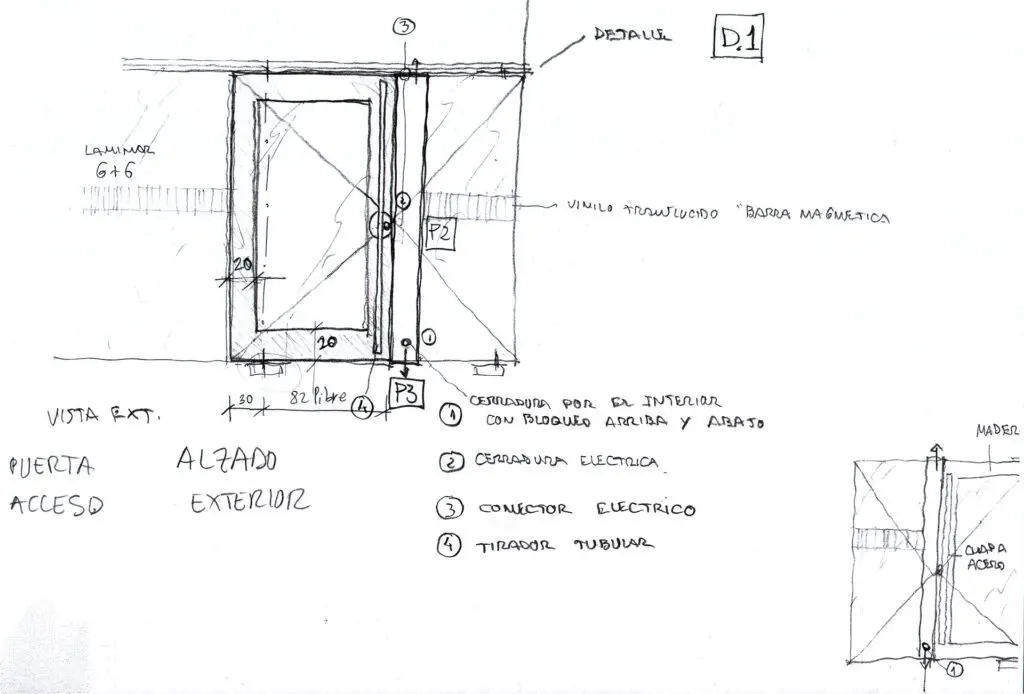 3
DETALLE
D.1
LAMINAR
6+6
2
VINILO TRANSLUCIDO "BARRA MAGNETICA
P2
20
20
1
P3
30
82 libre
4
VISTA EXT.
1 CERRADURA POR EL INTERIOR
CON BLOQUEO ARRIBA Y ABAJO
PUERTA ALZADO
ACCESO EXTERIOR
2 CERRADURA ELECTRICA.
3 CONECTOR ELECTRICO
4 TIRADOR TUBULAR
MADER
CHAPA
ACERO
1